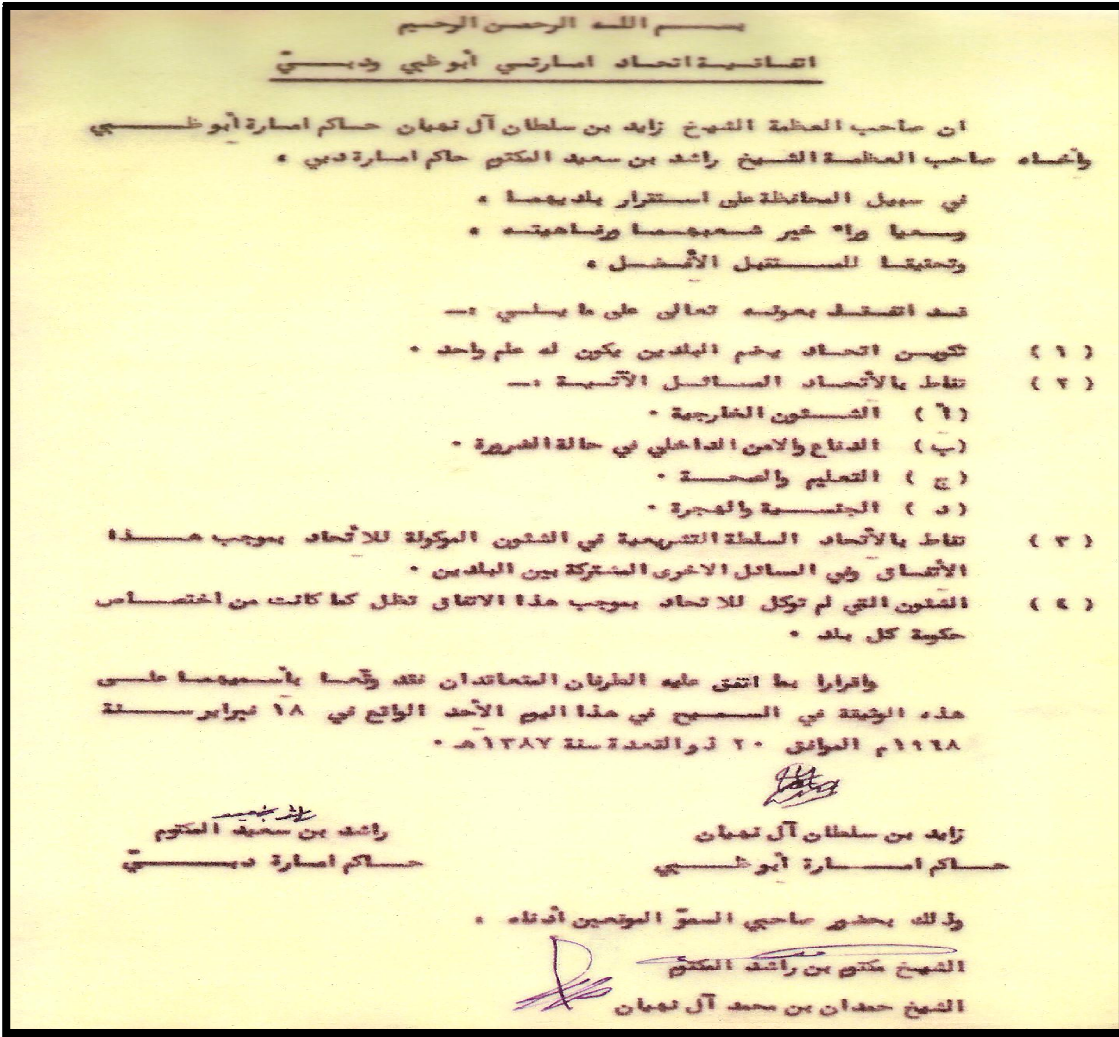 بسم الله الرحمن الرحيم
اتفاقية اتحاد امارتي أبوظبي ودبيّ
ان صاحب العظمة الشيخ زايد بن سلطان آل نهيان حاكم امارة أبوظبي
وأخاه صاحب العظمة الشيخ راشد بن سعيد المكتوم حاكم امارة دبي ،
في سبيل المحافظة على استقرار بلديهما ،
وسعيا وراء خير شعبهما ورفاهيته ،
وتحقيقا للمستقبل الأفضل ،
قد اتفقا بعونه تعالى على ما يلي :ــ
( ١ ) تكوين اتحاد يضم البلدين يكون له علم واحد ٠
( ٢ ) تناط بالأتحاد المسائل الآتية :ــ
( أ ) الشئون الخارجية ٠
(ب) الدفاع والامن الداخلي في حالة الضرورة ٠
( ج ) التعليم والصحة ٠
( د ) الجنسية والهجرة ٠
( ٣ ) تناط بالأتحاد السلطة التشريعية في الشئون الموكولة للاتحاد بموجب هذا
الأتفاق وفي المسائل الاخرى المشتركة بين البلدين ٠
( ٤ ) الشئون التي لم توكل للاتحاد بموجب هذا الاتفاق تظل كما كانت من اختصاص
حكومة كل بلد ٠
واقرارا بما اتفق عليه الطرفان المتعاقدان فقد وقّعا بأسميهما على
هذه الوثيقة في السميح في هذا اليوم الأحد الواقع في ١٨ فبراير سنة
١٩٦٨م الموافق ٢٠ ذو القعدة سنة ١٣٨٧هـ ٠
زايد بن سلطان آل نهيان
حاكم امارة أبوظبي
راشد بن سعيد المكتوم
حاكم امارة دبيّ
وذلك بحضور صاحبي السموّ الموقعين أدناه ،
الشيخ مكتوم بن راشد المكتوم
الشيخ حمدان بن محمد آل نهيان